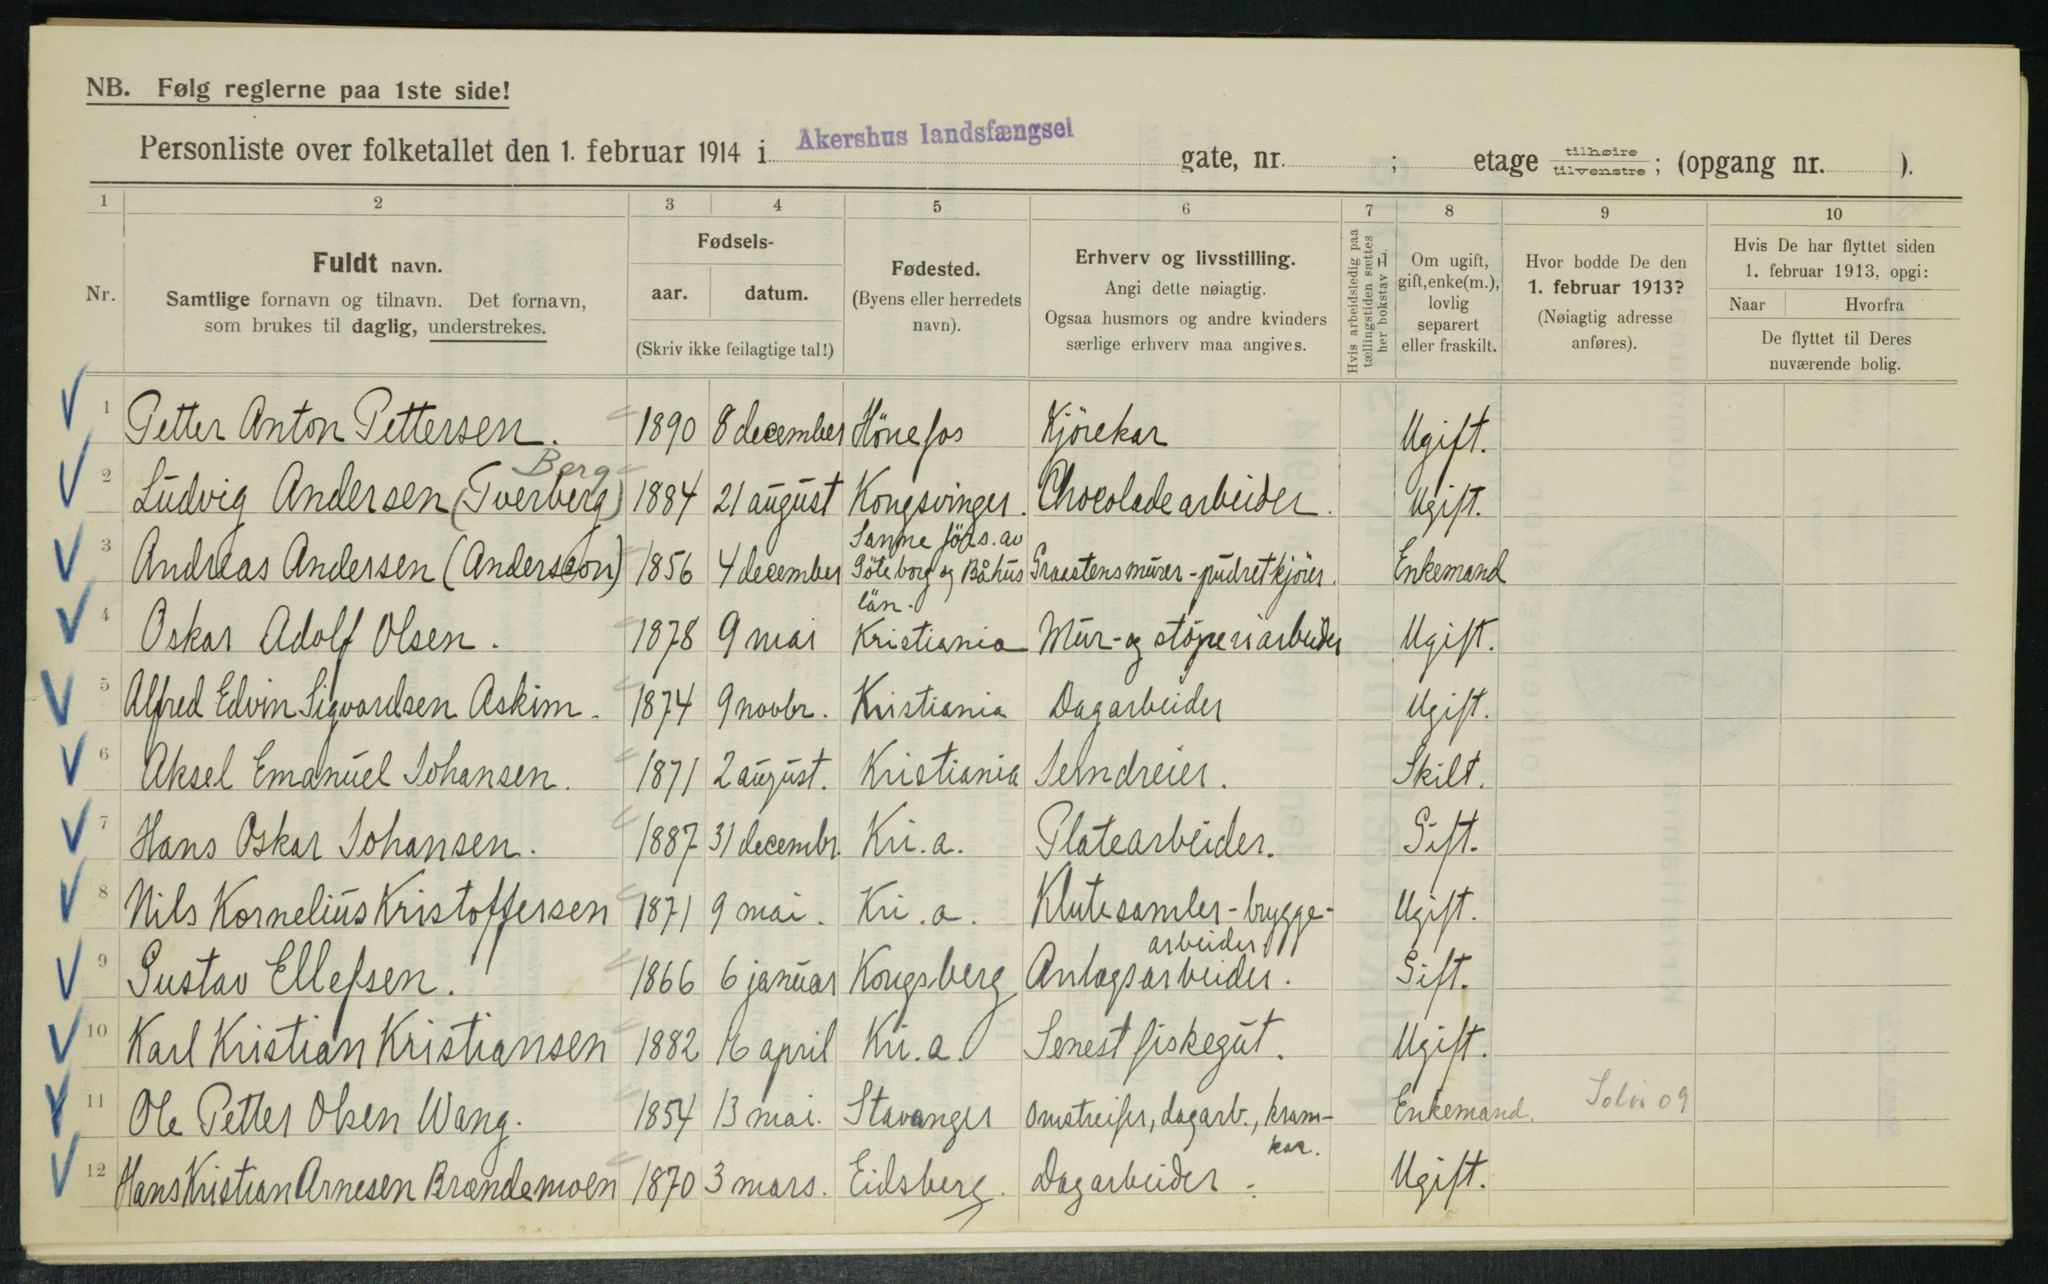 NB. Følg reglerne paa 1ste side!
Personliste over folketallet den 1. februar 1914 i Akershus landsfængsel gate, nr. ; etage tilhøire/tilvenstre; (opgang nr. ).
1 2 3 4 5 6 7 8 9 10
Nr.
Fuldt navn.
Samtlige fornavn og tilnavn. Det fornavn,
som brukes til daglig, understrekes.
Fødsels-
aar. datum.
(Skriv ikke feilagtige tal!)
Fødested.
(Byens eller herredets
navn).
Erhverv og livsstilling.
Angi dette nøiagtig.
Ogsaa husmors og andre kvinders
særlige erhverv maa angives.
Hvis arbeidsledig paa
tællingstiden sættes
her bokstav L
Om ugift,
gift, enke(m.),
lovlig
separert
eller fraskilt.
Hvor bodde De den
1. februar 1913?
(Nøiagtig adresse
anføres).
Hvis De har flyttet siden
1. februar 1913, opgi:
Naar Hvorfra
De flyttet til Deres
nuværende bolig.
1 Petter Anton Pettersen. 1890 8 december Hönefos Kjörekar Ugift.
Berg
2 Ludvig Andersen (Tverberg) 1884 21 august Kongsvinger. Chocoladearbeider. Ugift.
Sanne förs. av
3 Andreas Andersen (Anderson) 1856 4 december Göteborg og Båhus Graastensmurer-pudretkjörer. Enkemand
län.
4 Oskar Adolf Olsen. 1878 9 mai Kristiania Mur- og stöperiarbeider Ugift.
5 Alfred Edvin Sigvardsen Askim. 1874 9 novbr. Kristiania Dagarbeider Ugift.
6 Aksel Emanuel Johansen. 1871 2 august. Kristiania Jerndreier. Skilt.
7 Hans Oskar Johansen. 1887 31 decembr. Kri.a. Platearbeider. Gift.
8 Nils Kornelius Kristoffersen 1871 9 mai. Kri.a. Klutesamler-brygge-
arbeider Ugift.
9 Gustav Ellefsen. 1866 6 januar Kongsberg Anlægsarbeider. Gift.
10 Karl Kristian Kristiansen 1882 16 april Kri.a. Senest fiskegut. Ugift.
11 Ole Petter Olsen Wang. 1854 13 mai. Stavanger Omstreifer, dagarb., kram-
kar. Enkemand. 09
12 Hans Kristian Arnesen Brændemoen 1870 3 mars. Eidsberg. Dagarbeider Ugift.